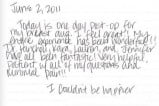 June 2, 2011
Today is one day post-op for
my breast aug. I feel great! My
entire experience has been wonderful!!
Dr. Kara, Lauren, and Jennifer
have all been fantastic! Very helpful,
patient w/ all of my questions and
minimal pain!!
I couldn't be happier